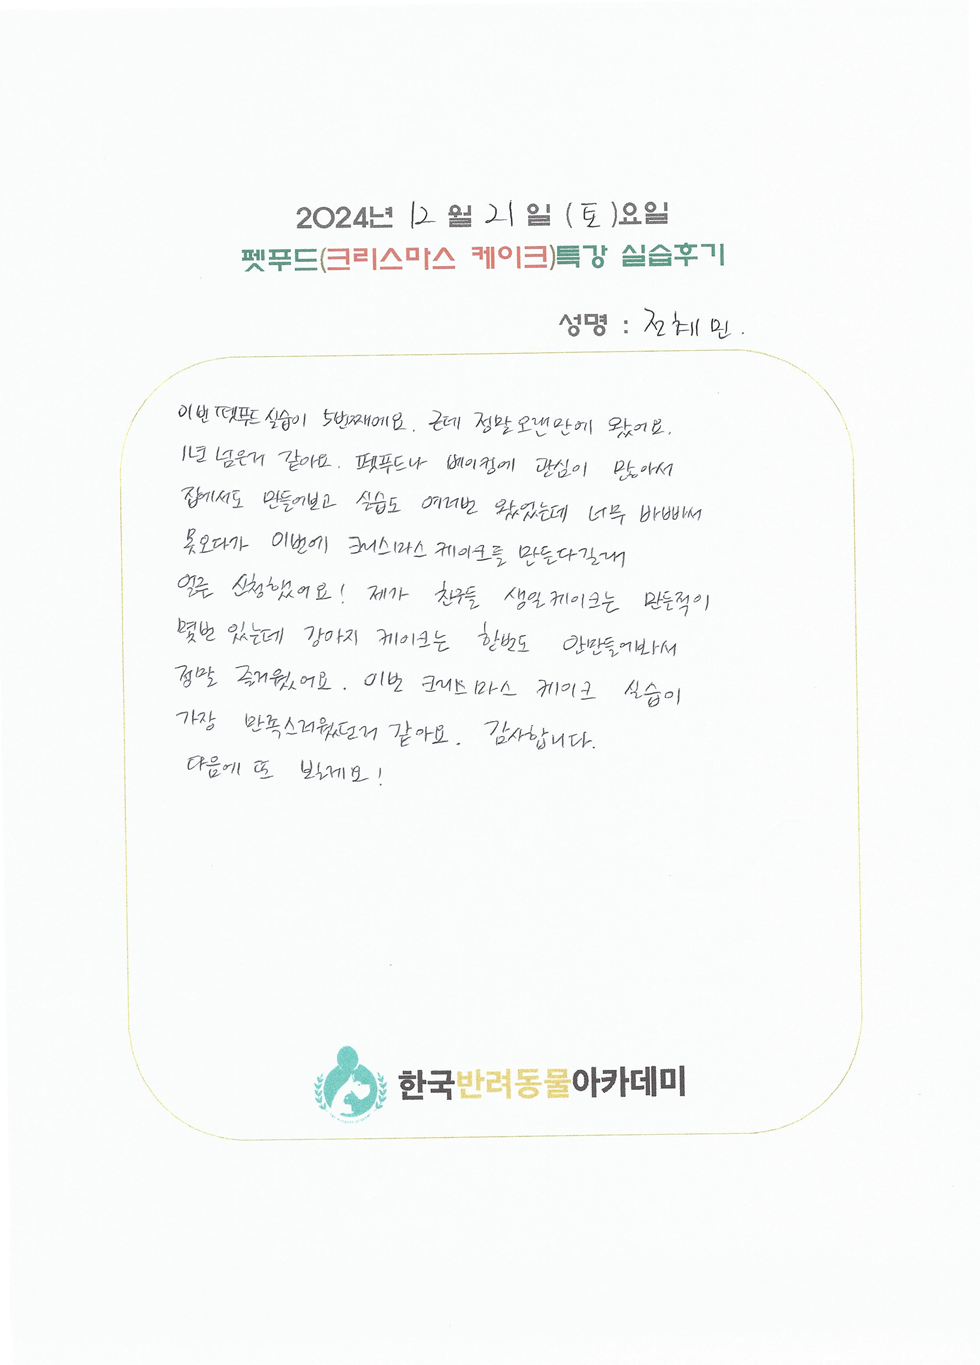 2024년 12 월 21 일 (토)요일
펫푸드(크리스마스 케이크)특강 실습후기
성명 : 전혜민.
이번 펫푸드 실습이 5번째에요. 근데 정말 오랜만에 왔어요.
1년 넘은거 같아요. 펫푸드나 베이킹에 관심이 많아서
집에서도 만들어보고 실습도 여러번 왔었는데 너무 바빠서
못오다가 이번에 크리스마스 케이크를 만든다길래
얼른 신청했어요! 제가 친구들 생일케이크는 만든적이
몇번 있는데 강아지 케이크는 한번도 안만들어봐서
정말 즐거웠어요. 이번 크리스마스 케이크 실습이
가장 만족스러웠던거 같아요. 감사합니다.
다음에 또 뵐게요!
한국반려동물아카데미